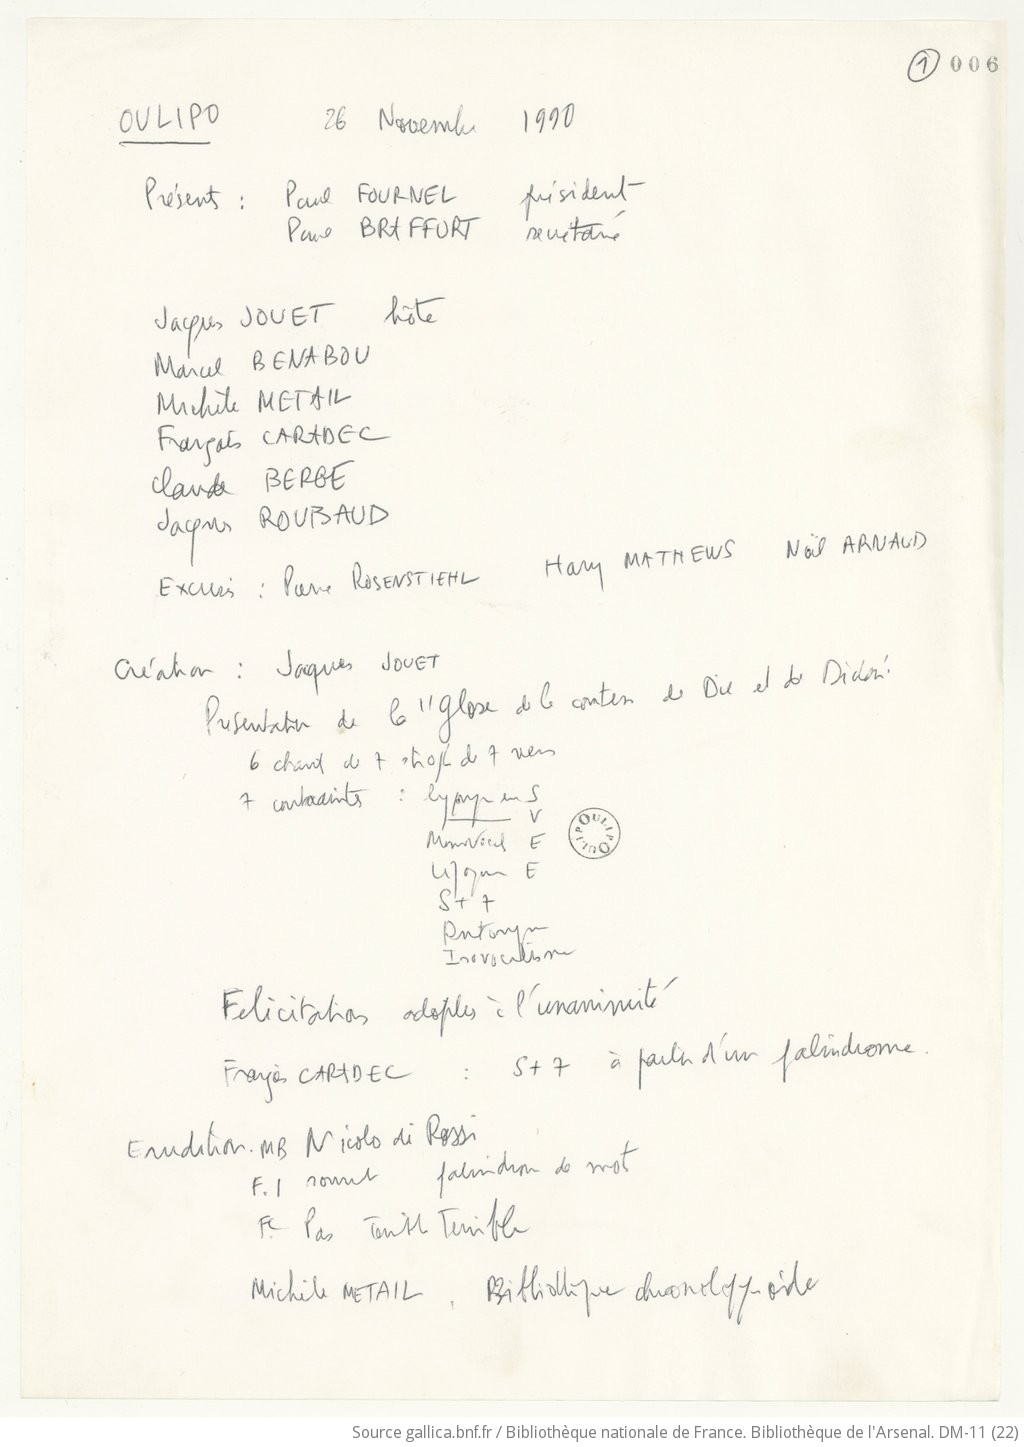 ① 006
OULIPO 26 Novembre 1990
Présents : Paul FOURNEL président
Paul BRAFFORT secrétaire
Jacques JOUET hôte
Marcel BENABOU
Michèle METAIL
François CARADEC
Claude BERGE
Jacques ROUBAUD
Excusés : Pierre ROSENSTIEHL Harry MATHEWS Noël ARNAUD
Création : Jacques JOUET
Présentation de la "Glose de la comtesse de Die et de Didon"
6 chants de 7 strophes de 7 vers
7 contraintes : lipogramme en S
V
Monovocal E
Lipogramme E
S+7
Antonymie
Isovocalisme
Félicitations adoptées à l'unanimité
François CARADEC : S+7 à partir d'un palindrome.
Erudition. MB Nicolo di Rossi
F. 1 sonnet palindrome de mots
FC Pas
Michèle METAIL. Bibliothèque
OULIPO OULIPO
Source gallica.bnf.fr / Bibliothèque nationale de France. Bibliothèque de l'Arsenal. DM-11 (22)